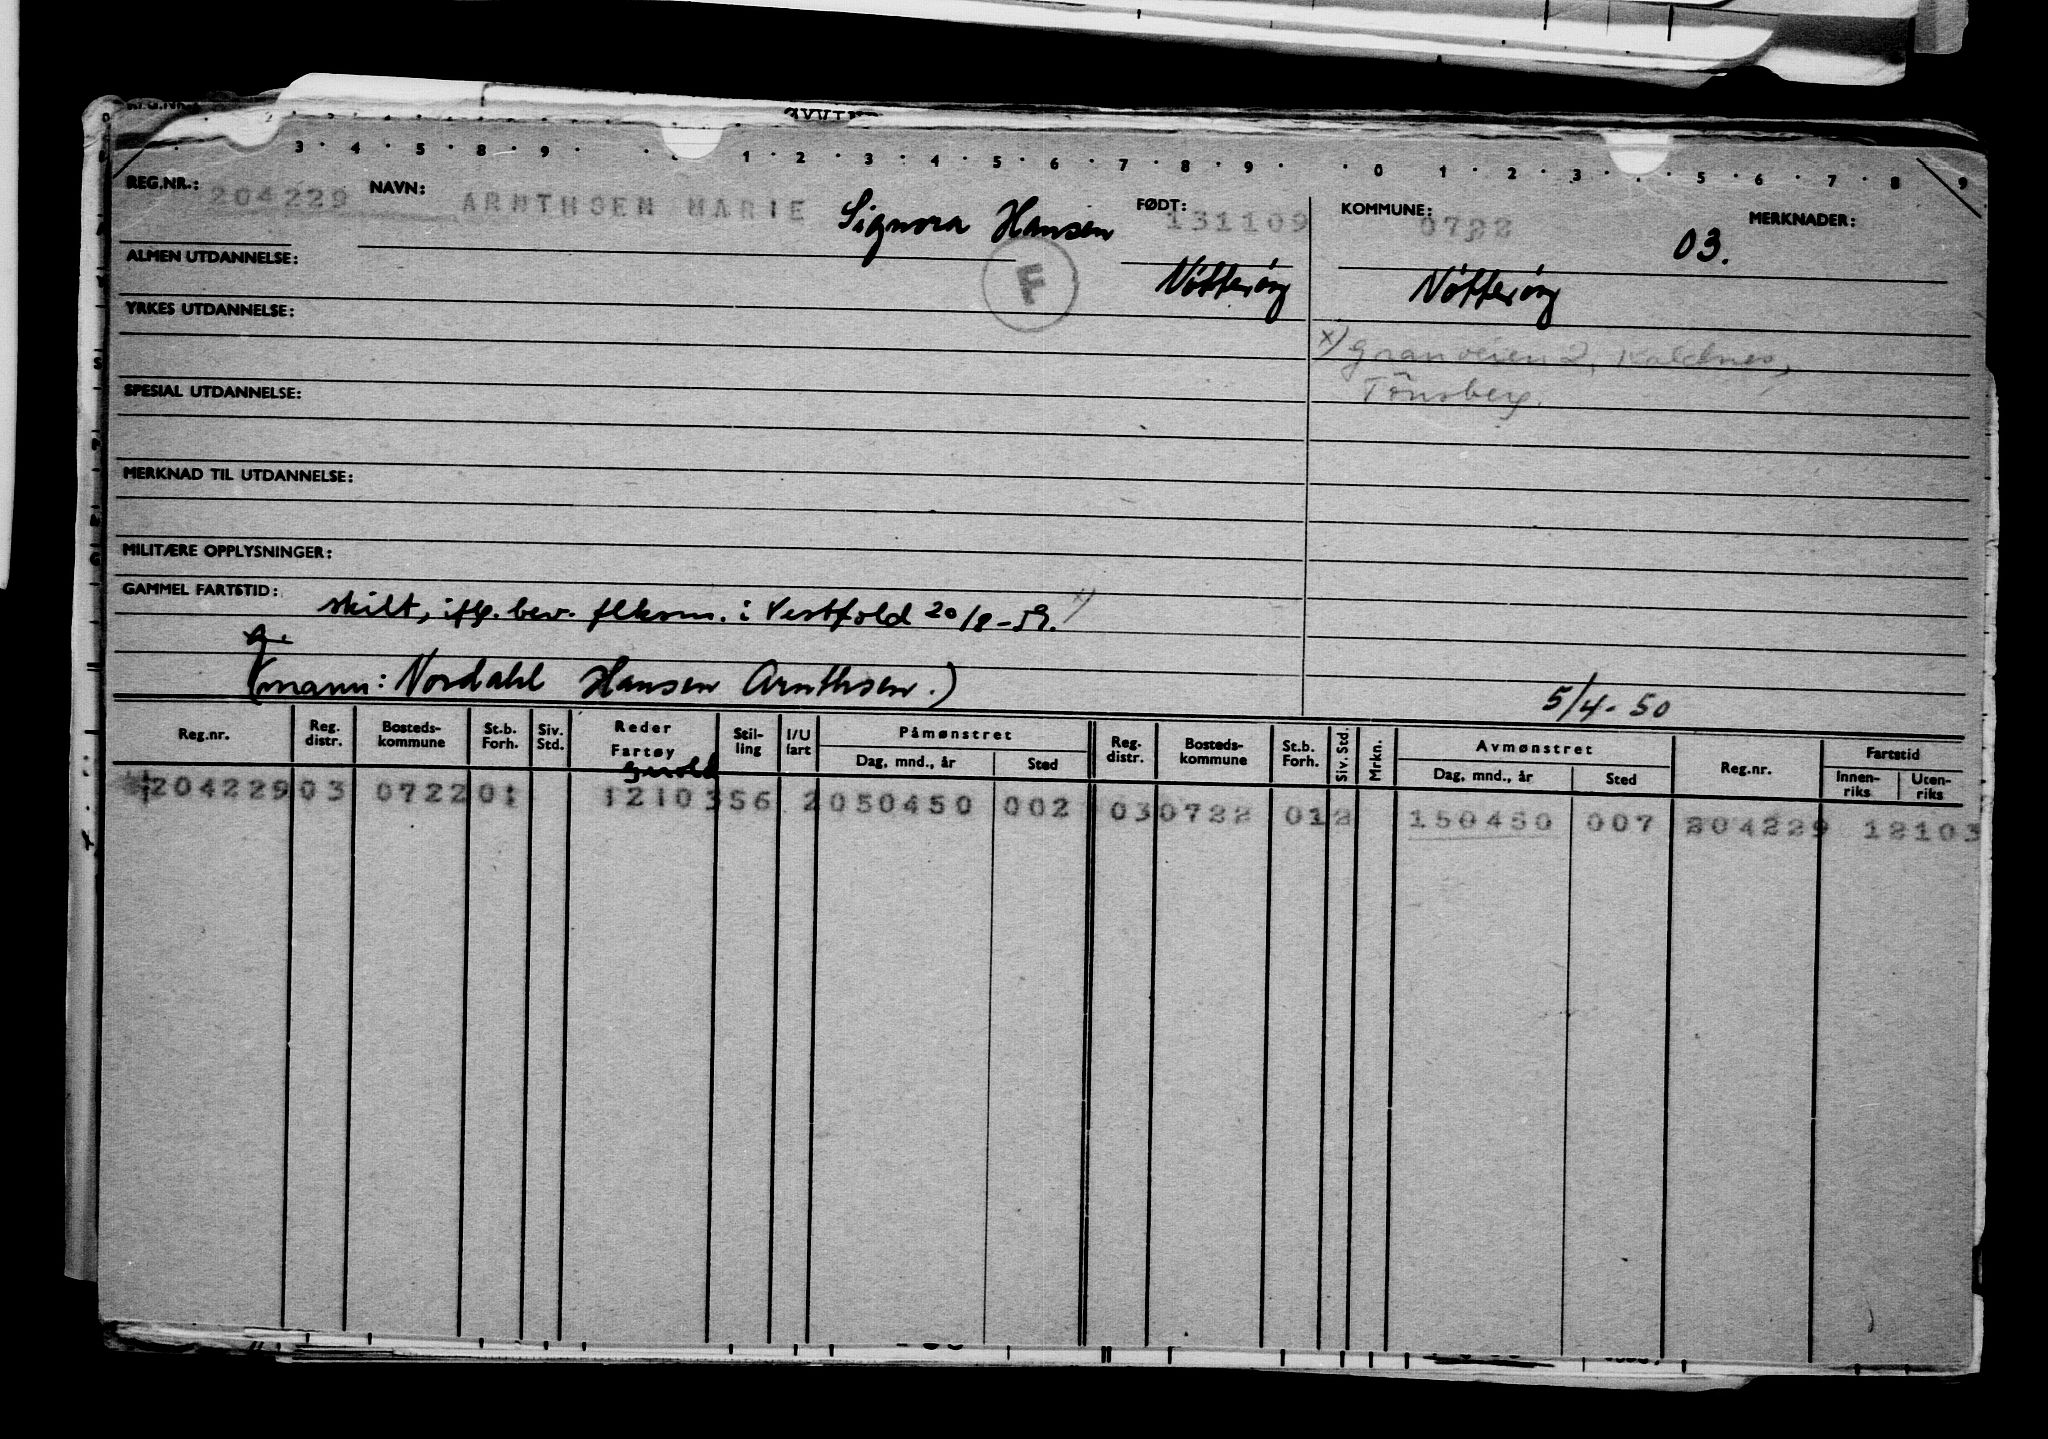 3 · 4 · 5 · 8 · 9 · · · 1 · 2 · 3 · 4 · 5 · 6 · 7 · 8 · 9 · · 0 · 1 · 2 · 3 · · 5 · 6 · 7 · 8 · 9
REG.NR.: 204229 NAVN: ARNTHSEN MARIE Signora Hansen FØDT: 131109 KOMMUNE: 0722 MERKNADER:
03.
ALMEN UTDANNELSE: F Nötteröy Nötteröy
YRKES UTDANNELSE:
x) Granveien 2, Kaldnes,
Tönsberg.
SPESIAL UTDANNELSE:
MERKNAD TIL UTDANNELSE:
MILITÆRE OPPLYSNINGER:
GAMMEL FARTSTID:
skilt, iflg. bev. flksm. i Vestfold 20/8-59. x)
g.
(mann: Nordahl Hansen Arnthsen.)
5/4-50
Reg.nr. Reg. distr. Bosteds-kommune St.b. Forh. Siv. Std. Reder Fartøy Stil-ling I/U fart Påmønstret Dag, mnd., år Sted Reg. distr. Bosteds-kommune St.b. Forh. Siv. Std. Mrkn. Avmønstret Dag, mnd., år Sted Reg.nr. Fartstid Innen-riks Uten-riks
204229 03 0722 01 12103 56 2 050450 002 03 0722 01 2 150450 007 204229 12103